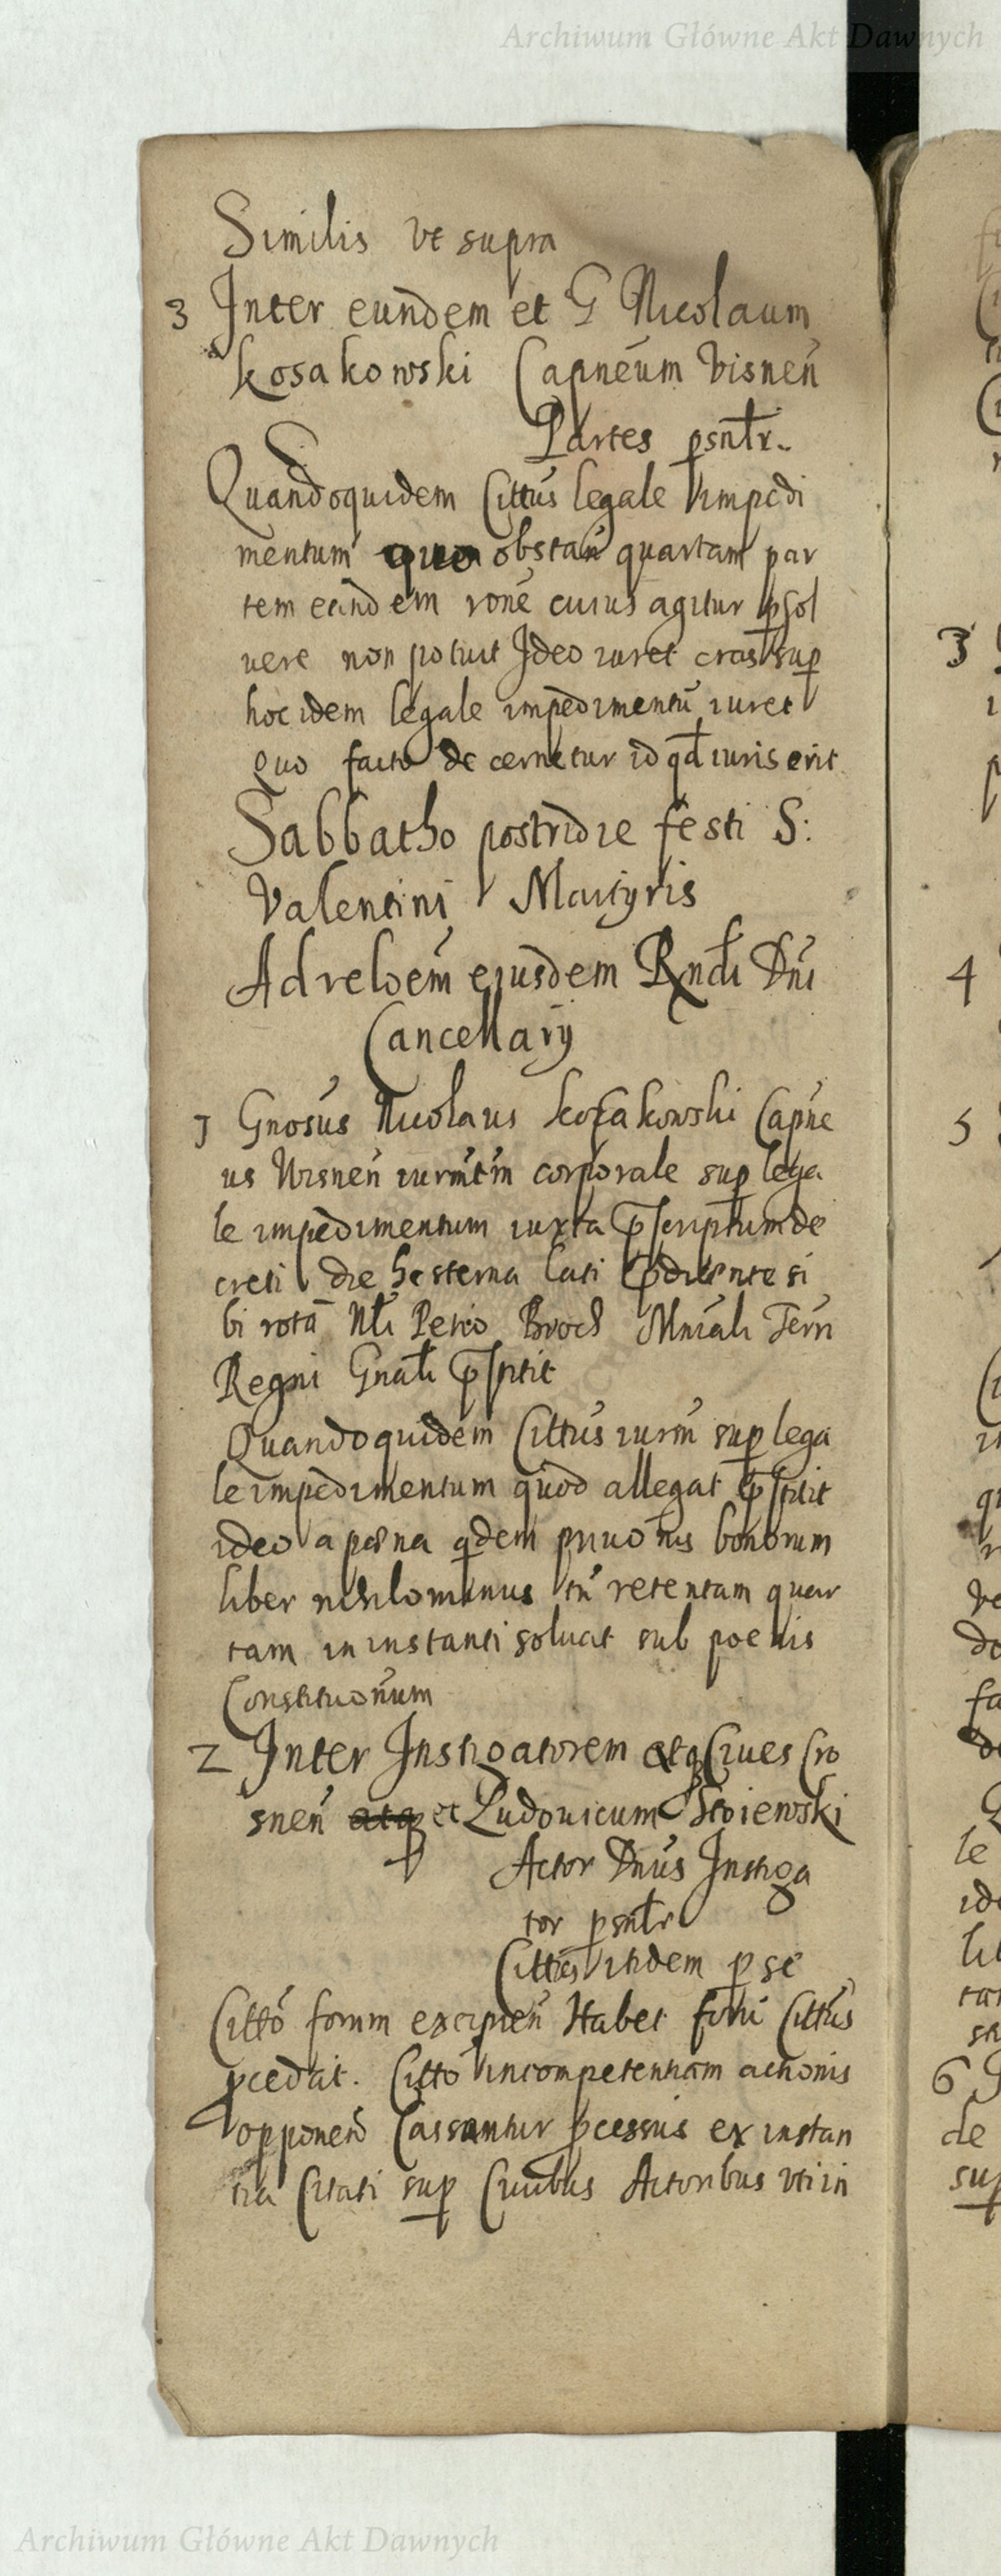 Archiwum Główne Akt Dawnych
Similis vt supra
3 Inter eundem et G Nicolaum
Kosakowski Capneum Visneń
Partes psntr.
Quandoquidem Cittus legale impedi
mentum quo obstań quartam par
tem eandem rone cuius agitur psol
vere non potuit Ideo iuret cras sup
hoc idem legale impedimentu iuret
quo facto decernetur id qd iuris erit
Sabbatho postridie festi S:
Valentini Martyris
Ad reloem eiusdem Rndi Dni
Cancellarij
1 Gnosus Nicolaus Kossakowski Capne
us Visneń iurmtm corporale sup lega
le impedimentum iuxta pscriptum de
creti die hesterna lati pducente si
bi rotā Nli Petro Broch Mnrali Terń
Regni Gnali pstitit
Quandoquidem Cittus iurm sup lega
le impedimentum quod allegat pstitit
ideo a poena qdem priuonis bonorum
liber nihilominus tn retentam quar
tam in instanti soluat sub poenis
Constituonum
2 Inter Instigatorem atq Ciues Cro
sneń atq et Ludouicum Stoiewski
Actor Dnus Instiga
tor psntr
Cittus itidem p se
Citto forum excipień Habet fori Cittus
pcedat. Citto incompetentiam actionis
opponeń Cassantur pcessus ex instan
tia Citati sup Ciuibus Actoribus vti in
3
4
5
6
Archiwum Główne Akt Dawnych